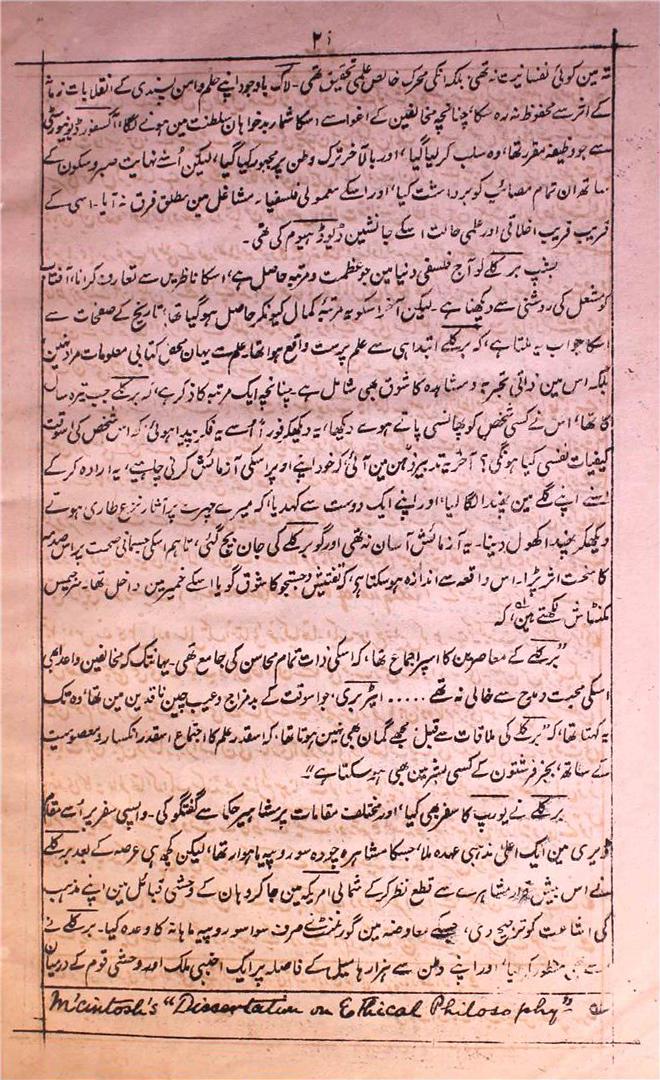 ۲۱
تہ مین کوئی نفسانیت نہ تھی؛ بلکہ انکی محرک خالص علمی تحقیق تھی۔ لاک باوجود اپنے حلم و امن پسندی کے انقلابات زمانہ
کے اثر سے محفوظ نہ رہ سکا، چنانچہ مخالفین کے اغوا سے اسکا شمار بدخواہان سلطنت مین ہونے لگا، آکسفورڈ یونیورسٹی
سے جو وظیفہ مقرر تھا، وہ سلب کر لیا گیا، اور بالآخر ترک وطن پر مجبور کیا گیا، لیکن اُسنے نہایت صبر و سکون کے
ساتھ ان تمام مصائب کو برداشت کیا، اور اسکے معمولی فلسفیانہ مشاغل مین مطلق فرق نہ آیا۔ اسی کے
قریب قریب اخلاقی اور علمی حالت اسکے جانشین ڈیوڈ ہیوم کی تھی۔
بشپ برکلے کو آج فلسفی دنیا مین جو عظمت و مرتبہ حاصل ہے، اسکا ناظرین سے تعارف کرانا، آفتاب
کو مشعل کی روشنی سے دکھینا ہے۔ لیکن آخر اسکو یہ مرتبۂ کمال کیونکر حاصل ہو گیا تھا؛ تاریخ کے صفحات سے
اسکا جواب یہ ملتا ہے، کہ برکلے ابتدا ہی سے علم پرست واقع ہوا تھا، علم سے یہان محض کتابی معلومات مراد نہین
بلکہ اس مین ذاتی تجربہ و مشاہدہ کا شوق بھی شامل ہے۔ چنانچہ ایک مرتبہ کا ذکر ہے، کہ برکلے جب تیرہ سال
کا تھا، اس نے کسی شخص کو پھانسی پاتے ہوے دکھا، یہ دکھکر فوراً اُسے یہ فکر پیدا ہوئی، کہ اس شخص کی اسوقت
کیفیات نفسی کیا ہونگی؟ آخر یہ تدبیر ذہن مین آئی، کہ خود اپنے اوپر اسکی آزمائش کرنی چاہیے، یہ ارادہ کرکے
اسنے اپنے گلے مین پھندا لگا لیا، اور اپنے ایک دوست سے کہدیا، کہ میرے چہرے پر آثار نزع طاری ہوتے
دیکھکر پھندا کھول دینا۔ یہ آزمائش آسان نہ تھی اور گو برکلے کی جان بچ گئی، تاہم اسکی جسمانی صحت پر اس صدمہ
کا سخت اثر پڑا۔ اس واقعہ سے اندازہ ہو سکتا ہی، کہ تفتیش و جستجو کا شوق گویا اسکے خمیر مین داخل تھا۔ سر جیمس
مکنٹاش لکھتے ہین، کہ
”برکلے کے معاصرین کا اسپر اجماع تھا، کہ اسکی ذات تمام محاسن کی جامع تھی۔ یہانتک کہ مخالفین و اعدا بھی
اسکی محبت و مدح سے خالی نہ تھے ..... اٹربری، جو اسوقت کے بدمزاج و عیب چین ناقدین مین تھا، وہ تک
یہ کہتا تھا، کہ ”برکلے کی ملاقات سے قبل مجھے گمان بھی نہین ہوتا تھا، کہ اسقدر علم کا اجتماع اسقدر انکسار و معصومیت
کے ساتھ، بجز فرشتون کے کسی بشر مین بھی ہو سکتا ہے“۔
برکلے نے یورپ کا سفر بھی کیا، اور مختلف مقامات پر مشاہیر حکما سے گفتگو کی۔ واپسی سفر پر اُسے مقام
ڈیری مین ایک اعلیٰ مذہبی عہدہ ملا، جسکا مشاہرہ چودہ سو روپیہ ماہوار تھا، لیکن کچھ ہی عرصہ کے بعد برکلے
نے اس بیش قرار مشاہرے سے قطع نظر کرکے شمالی امریکہ مین جاکر وہان کے وحشی قبائل مین اپنے مذہب
کی اشاعت کو ترجیح دی، جسکے معاوضہ مین گورنمنٹ نے صرف سوا سو روپیہ ماہانہ کا وعدہ کیا۔ برکلے نے
اسے بھی منظور کر لیا، اور اپنے وطن سے ہزارہا میل کے فاصلہ پر ایک اجنبی ملک اور وحشی قوم کے درمیان
M'cintosh's "Dissertation on Ethical Philosophy"